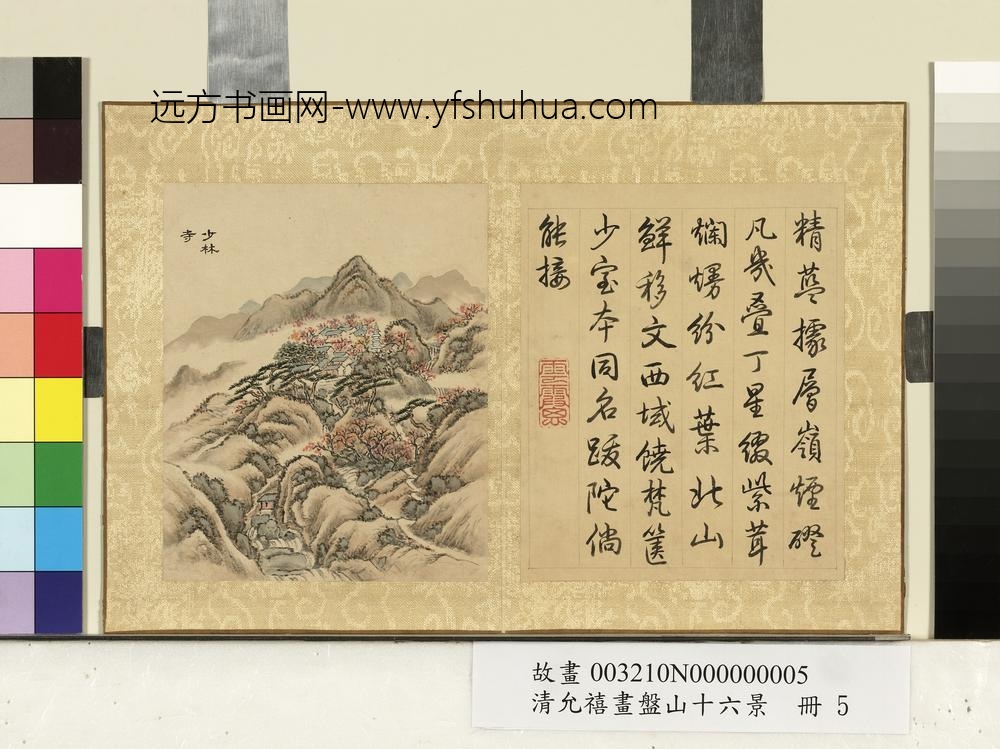 远方书画网-www.yfshuhua.com
少林
寺
精藍據層嶺煙磴
凡幾疊丁星緅紫茸
爛熳紛紅葉北山
鮮移文西域饒梵篋
少室本同名跋陀倘
能接
故畫 003210N000000005
清允禧畫盤山十六景 冊 5